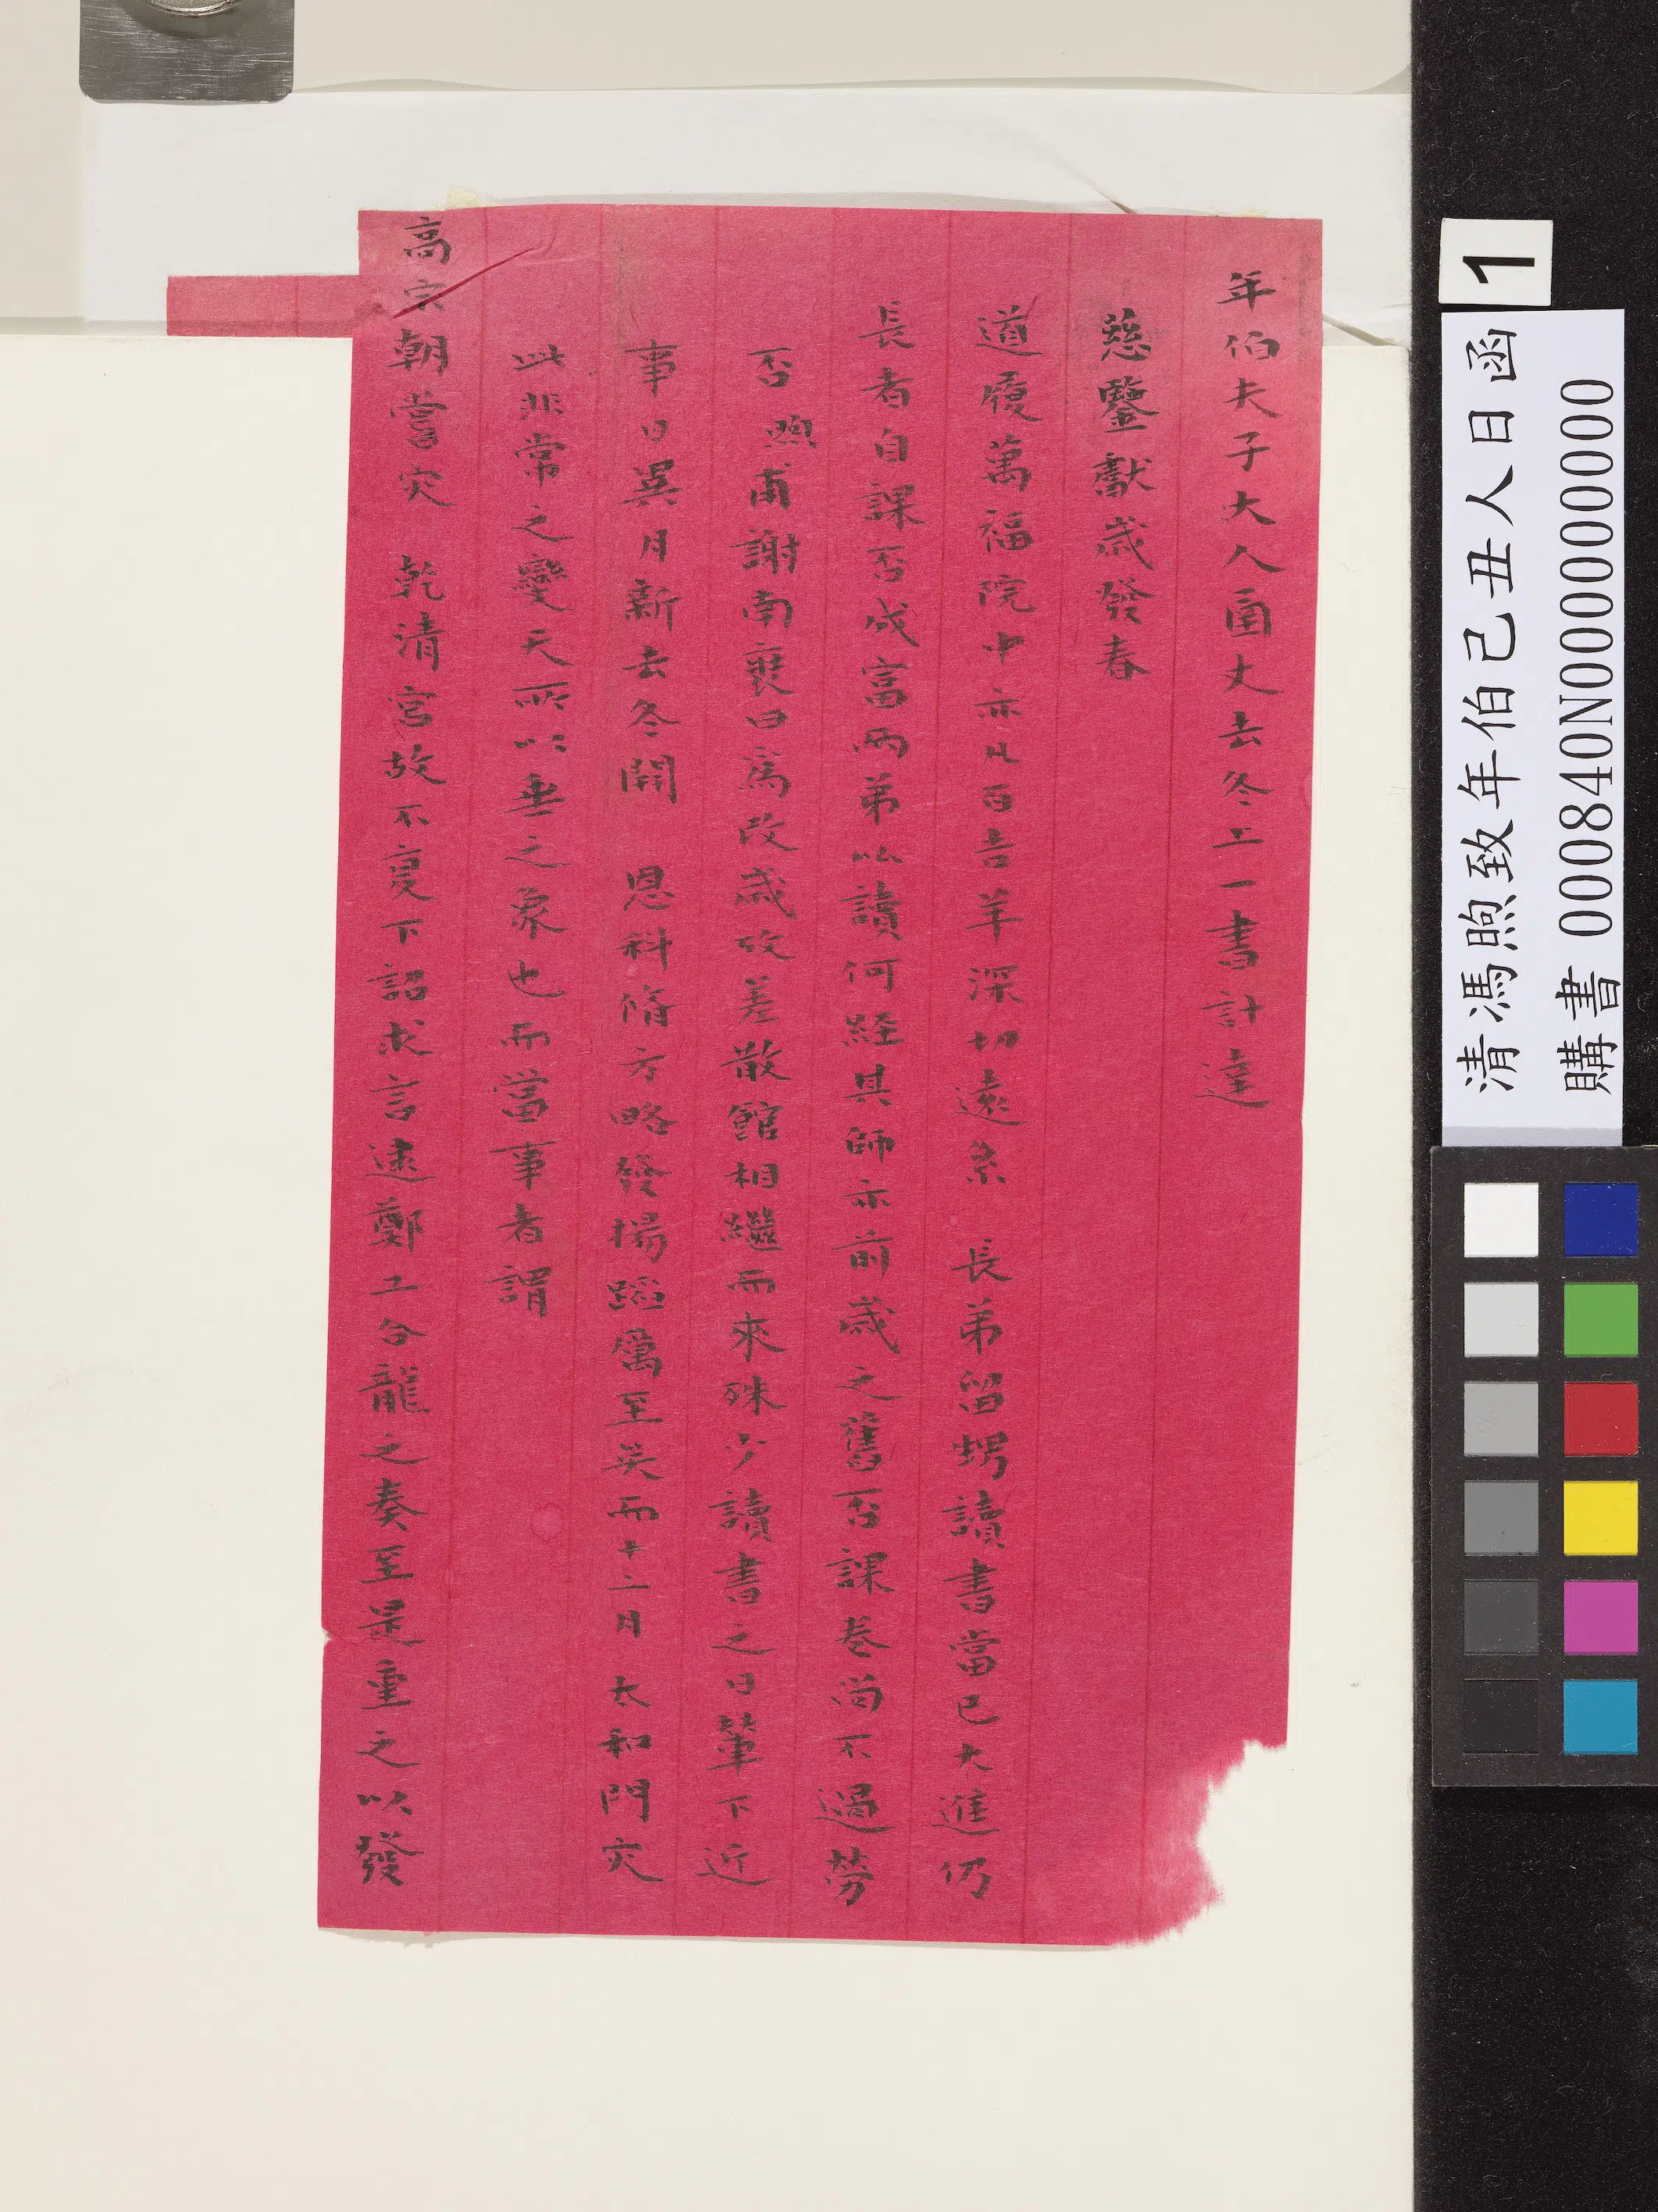 年伯夫子大人函丈去冬上一書計達
慈鑒獻歲發春
道履萬福院中亦凡百吉羊深切遠系 長弟留甥讀書當已大進仍
長者自課否成富兩弟以讀何經其師亦前歲之舊否課卷尚不過勞
否煦甫謝南裹曰為改歲改差散館相繼而來殊少讀書之日輦下近
事日異月新去冬開 恩科脩方略發揚蹈厲至矣而十二月 太和門灾
此非常之變天所以垂之象也而當事者謂
高宗朝嘗灾 乾清宮故不寔下詔求言逮鄭工合龍之奏至是重之以發
1
清馮煦致年伯己丑人日函
購書 000840N000000000